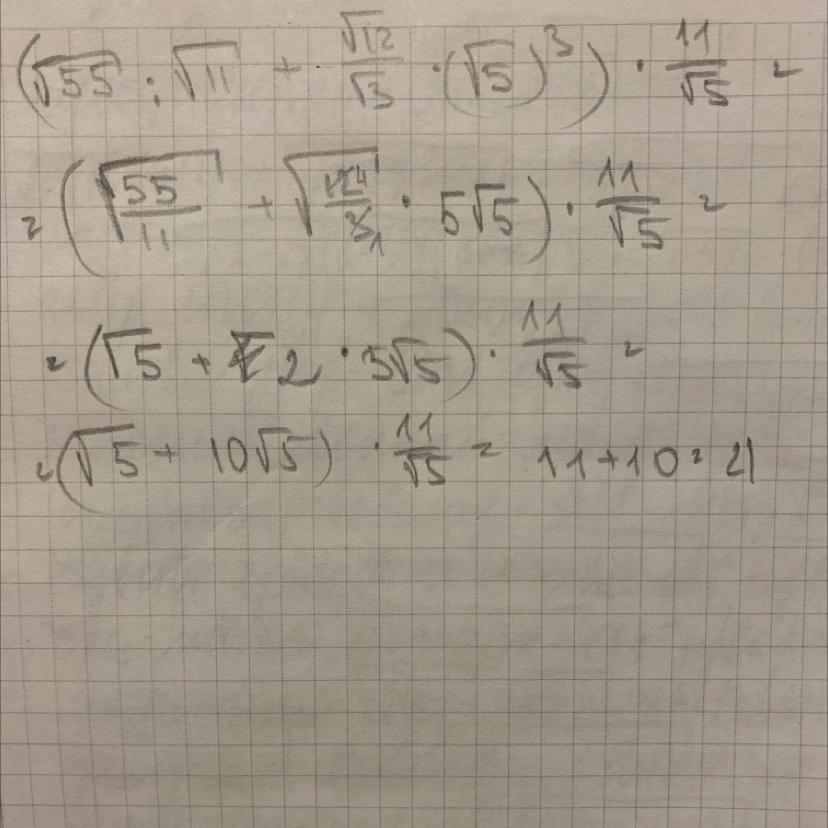 (√55 : √11 + √12/√3 · (√5)³) · 11/√5 =
= (√(55/11) + √(12 4/3 1) · 5√5) · 11/√5 =
= (√5 + 2 · 5√5) · 11/√5 =
= (√5 + 10√5) · 11/√5 = 11+10 = 21